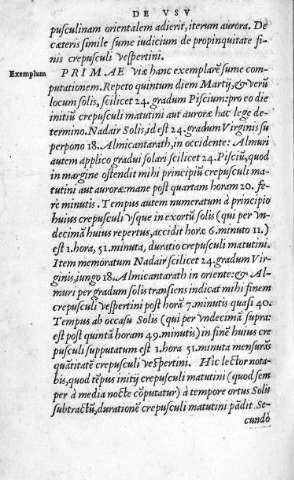 DE VSV
pusculinam orientalem adierit, iterum aurora. De
cæteris simile sume iudicium de propinquitate fi-
nis crepusculi vespertini.
Exemplum
PRIMAE viæ hanc exemplarē sume com-
putationem. Repeto quintum diem Martÿ, & verū
locum solis, scilicet 24. gradum Piscium: pro eo die
initiū crepusculi matutini aut auroræ hac lege de-
termino. Nadair Solis, id est 24. gradum Virginis su
perpono 18. Almicantarath, in occidente: Almuri
autem applico gradui solari scilicet 24. Pisciū, quod
in margine ostendit mihi principiū crepusculi ma-
tutini aut auroræ: mane post quartam horam 20. fe-
re minutis. Tempus autem numeratum à principio
huius crepusculi vsque in exortū solis (qui per vn-
decimā huius repertus, accidit horæ 6. minuto 11.)
est 1. hora, 51. minuta, duratio crepusculi matutini.
Item memoratum Nadair scilicet 24. gradum Vir-
ginis, iungo 18. Almicantarath in oriente: & Al-
muri per gradum solis transiens indicat mihi finem
crepusculi vespertini post horā 7. minutis quasi 40.
Tempus ab occasu Solis (qui per vndecimā supra:
est post quintā horam 49. minutis) in finē huius cre
pusculi supputatum est 1. hora 51. minuta mensurās
quātitatē crepusculi vespertini. Hîc lector nota-
bis, quod tēpus initÿ crepusculi matutini (quod sem
per à media nocte cōputatur) à tempore ortus Solis
subtractū, durationē crepusculi matutini pādit. Se-
cundò